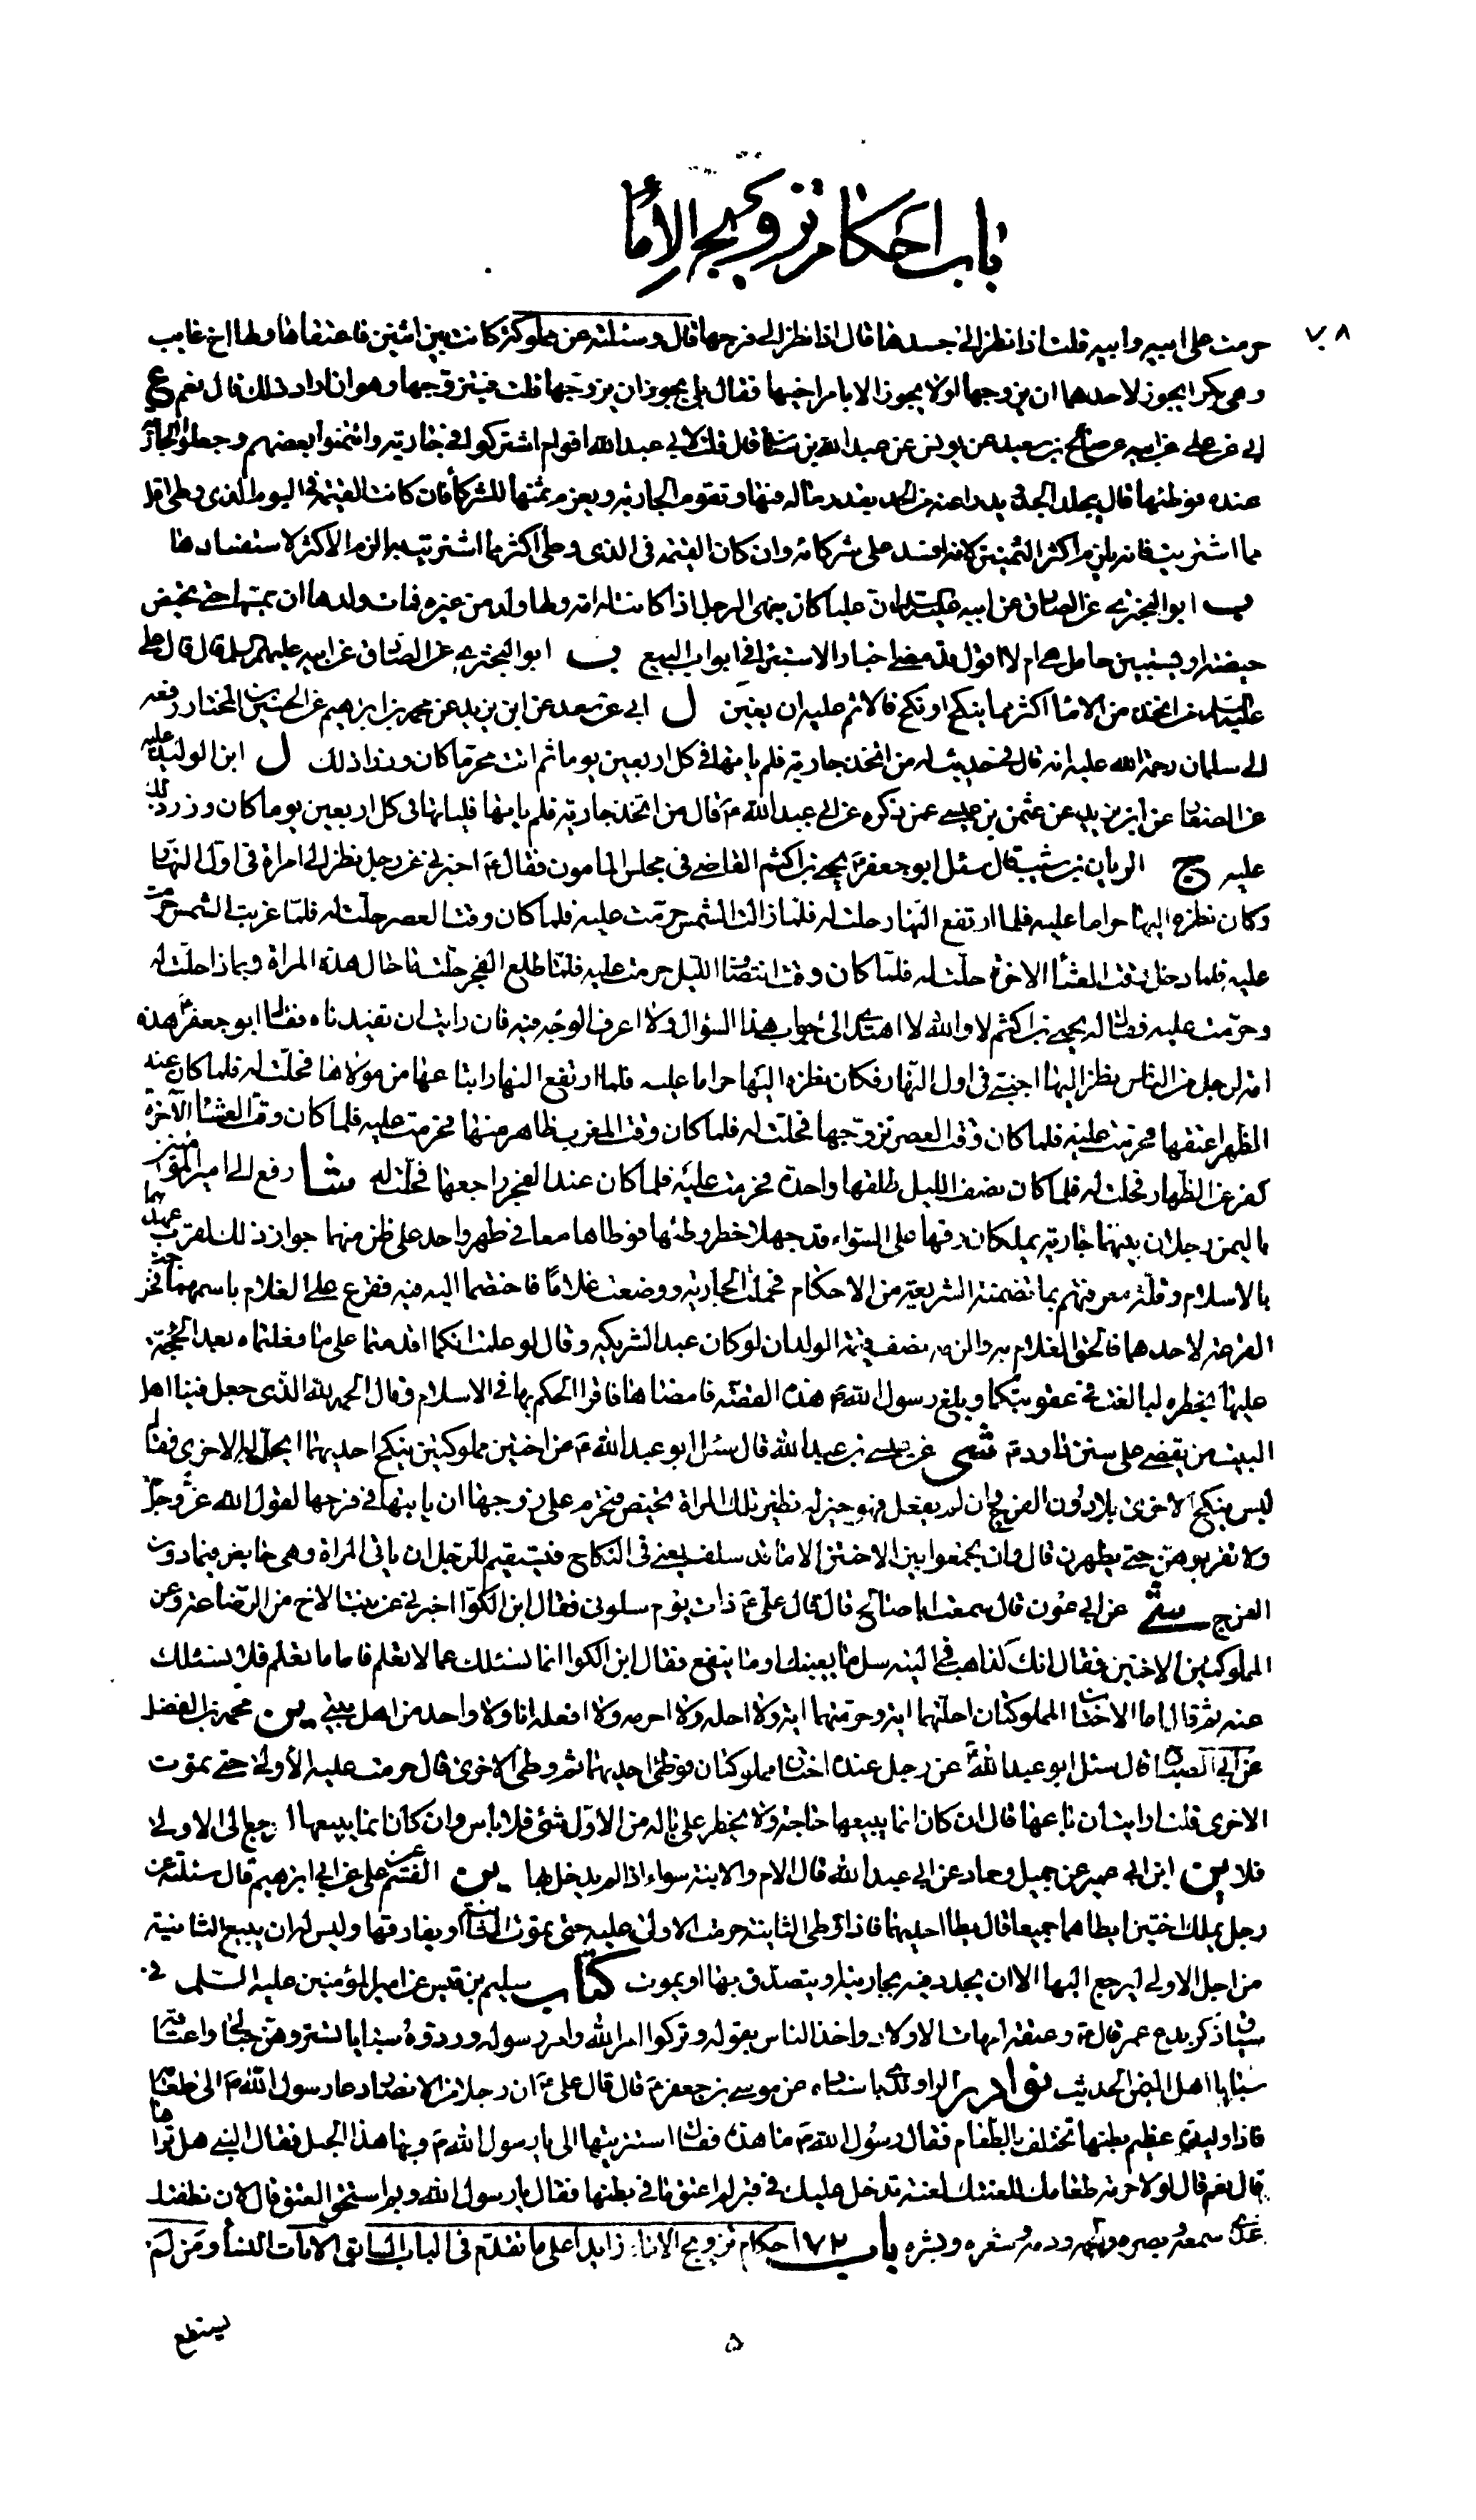 باب احكام تزويج الاماء
٧٨
حرمت على ابيه وابنه قلت اذا نظر الى جسدها قال اذا نظر الى فرجها قال وسئلته عن مملوكة كانت بين اثنين فاعتقاها ولها اخ غايب
وهى بكر ايجوز لاحدهما ان يزوجها اولا يجوز الا بامر اخيها فقال بلى يجوز ان يزوجها قلت فيتزوجها هو ان اراد ذلك قال نعم ع
ابى عن على عن ابيه عن صالح بن سعيد عن يونس عن عبدالله بن سنان قال قلت لابى عبدالله اقوام اشتركوا فى جارية وائتمنوا بعضهم وجعلوا الجارية
عنده فوطئها قال يجلد الحد ويدرا عنه من الحد بقدر ماله فيها وتقوم الجارية ويغرم ثمنها للشركاء فان كانت القيمة فى اليوم الذى وطى اقل
مما اشتريت فانه يلزم اكثر الثمنين لانه افسد على شركائه وان كان القيمة فى الذى وطى اكثر مما اشتريت به يلزم الاكثر لاستفسادها
ب ابو البخترى عن الصادق عن ابيه عليهما السلام ان عليا كان ينهى الرجل اذا كانت له امراة ولها ولد من غيره فمات ولدها ان يمسها حتى تحيض
حيضة او يستبين حامل هى ام لا اقول قد مضى اخبار الاستبراء فى ابواب البيع ب ابو البخترى عن الصادق عن ابيه عليهما السلم قال قال على
عليه السلم من اتخذ من الاماء اكثر مما ينكح او نكح فالاثم عليه ان بغين ل ابى عن سعد عن ابن يزيد عن محمد بن ابرهيم عن الحسين بن المختار رفعه
الى سلمان رحمة الله عليه انه قال فى حديث له من اتخذ جارية فلم ياتها فى كل اربعين يوما ثم اتت محرما كان وزر ذلك عليه ل ابن الوليد
عن الصفار عن ابن يزيد عن عثمن بن عيسى عمن ذكره عن ابى عبدالله ع قال من اتخذ جارية فلم ياتها فليأتها فى كل اربعين يوما كان وزر ذلك
عليه ج الريان بن شبيب قال سئل ابو جعفر ع يحيى بن اكثم القاضى فى مجلس المامون فقال ع اخبرنى عن رجل نظر الى امراة فى اول النهار
وكان نظره اليها حراما عليه فلما ارتفع النهار حلت له فلما زالت الشمس حرمت عليه فلما كان وقت العصر حلت له فلما غربت الشمس حرمت
عليه فلما دخل وقت العشاء الاخرة حلت له فلما كان وقت انتصاف الليل حرمت عليه فلما طلع الفجر حلت له ما حال هذه المراة وبماذا حلت له
وحرمت عليه فقال له يحيى بن اكثم لا والله لا اهتدى الى جواب هذا السؤال ولا اعرف الوجه فيه فان رايت ان تفيدناه فقال ابو جعفر ع هذه
امة لرجل من الناس نظر اليها اجنبى فى اول النهار فكان نظره اليها حراما عليه فلما ارتفع النهار ابتاعها من مولاها فحلت له فلما كان عند
الظهر اعتقها فحرمت عليه فلما كان وقت العصر تزوجها فحلت له فلما كان وقت المغرب ظاهر منها فحرمت عليه فلما كان وقت العشاء الآخرة
كفر عن الظهار فحلت له فلما كان نصف الليل طلقها واحدة فحرمت عليه فلما كان عند الفجر راجعها فحلت له شا رفع الى امير المؤمنين
باليمن رجلان بينهما جارية يملكان رقها على السواء قد جهلا خطر وطئها فوطاها معا فى طهر واحد على ظن منهما جواز ذلك لقرب عهدهما
بالاسلام وقلة معرفتهم بما تضمنته الشريعة من الاحكام فحملت الجارية ووضعت غلاما فاختصما اليه فيه فقرع على الغلام باسمهما فخرجت
القرعة لاحدهما فالحق الغلام به والزمه نصف قيمة الولد ان لو كان عبدا لشريكه وقال لو علمت انكما اقدمتما على ما فعلتماه بعد الحجة
عليها بخطره لبالغت فى عقوبتكما وبلغ رسول الله ص هذه القضية فامضاها واقر الحكم بها فى الاسلام وقال الحمد لله الذى جعل فينا اهل
البيت من يقضى على سنن داود ع شى عن عيسى بن عبدالله قال سئل ابو عبدالله ع عن اختين مملوكتين ينكح احديهما ايحل له الاخرى فقال
ليس ينكح الاخرى الا دون الفرج وان لم يفعل فهو خير له نظير تلك المراة تحيض فتحرم على زوجها ان ياتيها فى فرجها لقول الله عز وجل
ولا تقربوهن حتى يطهرن قال وان تجمعوا بين الاختين الا ما قد سلف يعنى فى النكاح فيستقيم للرجل ان ياتى امراة وهى حايض فيما دون
الفرج شى عن ابى عون قال سمعت ابا صالح قال قال على ع ذات يوم سلونى فقال ابن الكوا اخبرنى عن بنت الاخ من الرضاعة وعن
المملوكتين الاختين فقال انك لذاهب فى التيه سل ما يعنيك او ما ينفع فقال ابن الكوا انما نسئلك عما لا نعلم فاما ما نعلم فلا نسئلك
عنه ثم قال اما الاختان المملوكتان احلتهما اية وحرمتهما اية ولا احله ولا احرمه ولا افعله انا ولا واحد من اهل بيتى ين محمد بن الفضل
عن ابى الصباح قال سئل ابو عبدالله عن رجل عنده اختان مملوكتان فوطئ احديهما ثم وطى الاخرى قال حرمت عليه الأولى حتى تموت
الاخرى قلت ارايت ان باعها قال ان كان انما يبيعها حاجة ولا يخطر على باله من الاول شئ فلا باس وان كان انما يبيعها ليرجع الى الاولى
فلا ين ابن ابى عمير عن جميل وحماد عن ابى عبدالله قال الام والابنة سواء اذا لم يدخل بها ين القسم عن على عن ابى ابرهيم قال سئلته عن
رجل يملك اختين ايطاهما جميعا قال يطا احديهما فاذا وطى الثانية حرمت الاولى عليه حتى تموت الثانية او يفارقها وليس له ان يبيع الثانية
من اجل الاولى ليرجع اليها الا ان يبيع لحاجة او يتصدق بها او يموت كتاب سليم بن قيس عن امير المؤمنين عليه السلم فى
سياق ذكر بدع عمر قال ع وعتقه امهات الاولاد واخذ الناس بقوله وتركوا امر الله وامر رسوله ورده سبايا تستر وهن حبالى واعتاقه
سبايا اهل اليمن الحديث نوادر الراوندى باسناده عن موسى بن جعفر ع قال قال على ع ان رجلا من الانصار دعا رسول الله ص الى طعام
فاذا وليدة عظيم بطنها تختلف بالطعام فقال رسول الله ص ما هذه فقال اشتريتها الى يا رسول الله ص وبها هذا الحبل فقال النبى هل قربتها
قال نعم قال لولا حرمة طعامك للعنتك لعنة تدخل عليك فى قبرك اعتق ما فى بطنها فقال يا رسول الله وبم استحق العتق قال لان نطفتك
غذى سمعه وبصره ولحمه ودمه وشعره وبشره باب ٧٢ احكام تزويج الاماء زايدا على ما تقدم فى الباب السابق الآيات النساء ومن لم
يستطع
۵